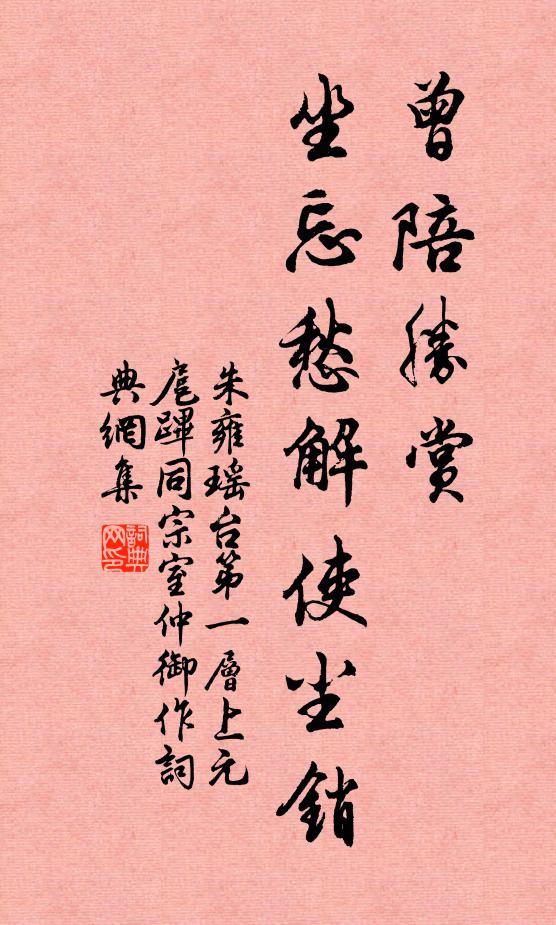 曾陪勝賞
坐忘愁解使尘銷
朱雍瑶台第一層上元
扈蹕同宗室仲御作詞
典網集
詞典网印